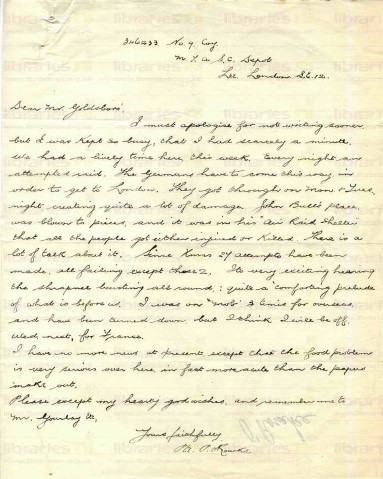 346233 No. 9. Coy
M. T. A. S. C. Depot
Lee. London S.E. 12.
Dear Mr. Goldsbro'.
I must apologise for not writing sooner
but I was kept so busy, that I had scarcely a minute.
We had a lively time here this week. Every night an
attempted raid. The Germans have to come this way in
order to get to London. They got through on Mon & Tues
night, creating quite a lot of damage. John Bull's place,
was blown to pieces, and it was in his "Air Raid Shelter
that all the people got either injured or killed. There is a
lot of talk about it. Since Xmas 27 attempts have been
made, all failing except those 2. Its very exciting hearing
the shrapnel bursting all round, quite a comforting prelude
of what is before us. I was on "mob" 3 times for overseas,
and have been turned down but I think I will be off
Wed. next, for France.
I have no more news at present except that the food problem
is very serious over here, in fact more acute than the papers
make out.
Please accept my hearty good wishes, and remember me to
Mr.
Yours faithfully
P. O'Rourke
libraries